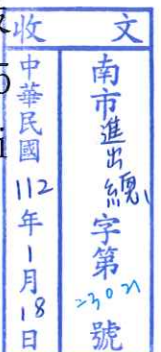 收文
南市進出總字第23021號
中華民國112年1月18日